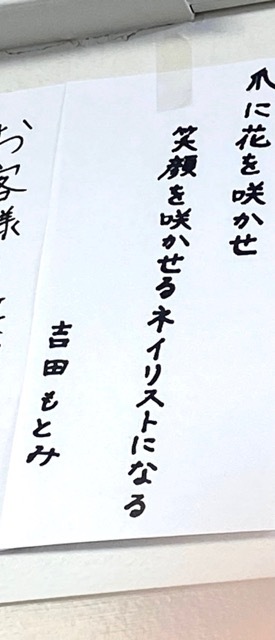 爪に花を咲かせ
笑顔を咲かせるネイリストになる
吉田もとみ
お客様